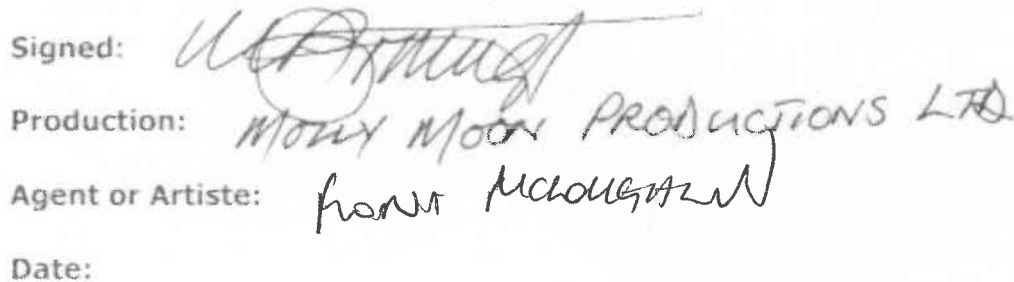 Signed:
Production: MOLLY MOON PRODUCTIONS LTD
Agent or Artiste: MCLOUGHLIN
Date: